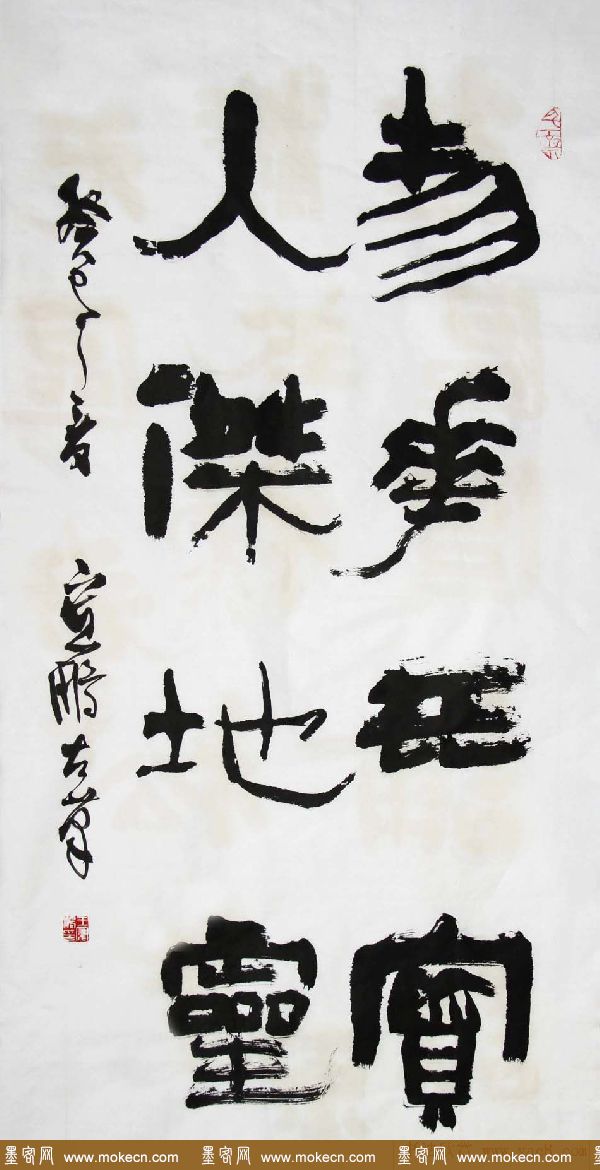 物華天寶
人傑地靈
癸巳之春 鵬左筆
墨客网 www.mokecn.com 墨客网 www.mokecn.com 墨客网 www.mokecn.com